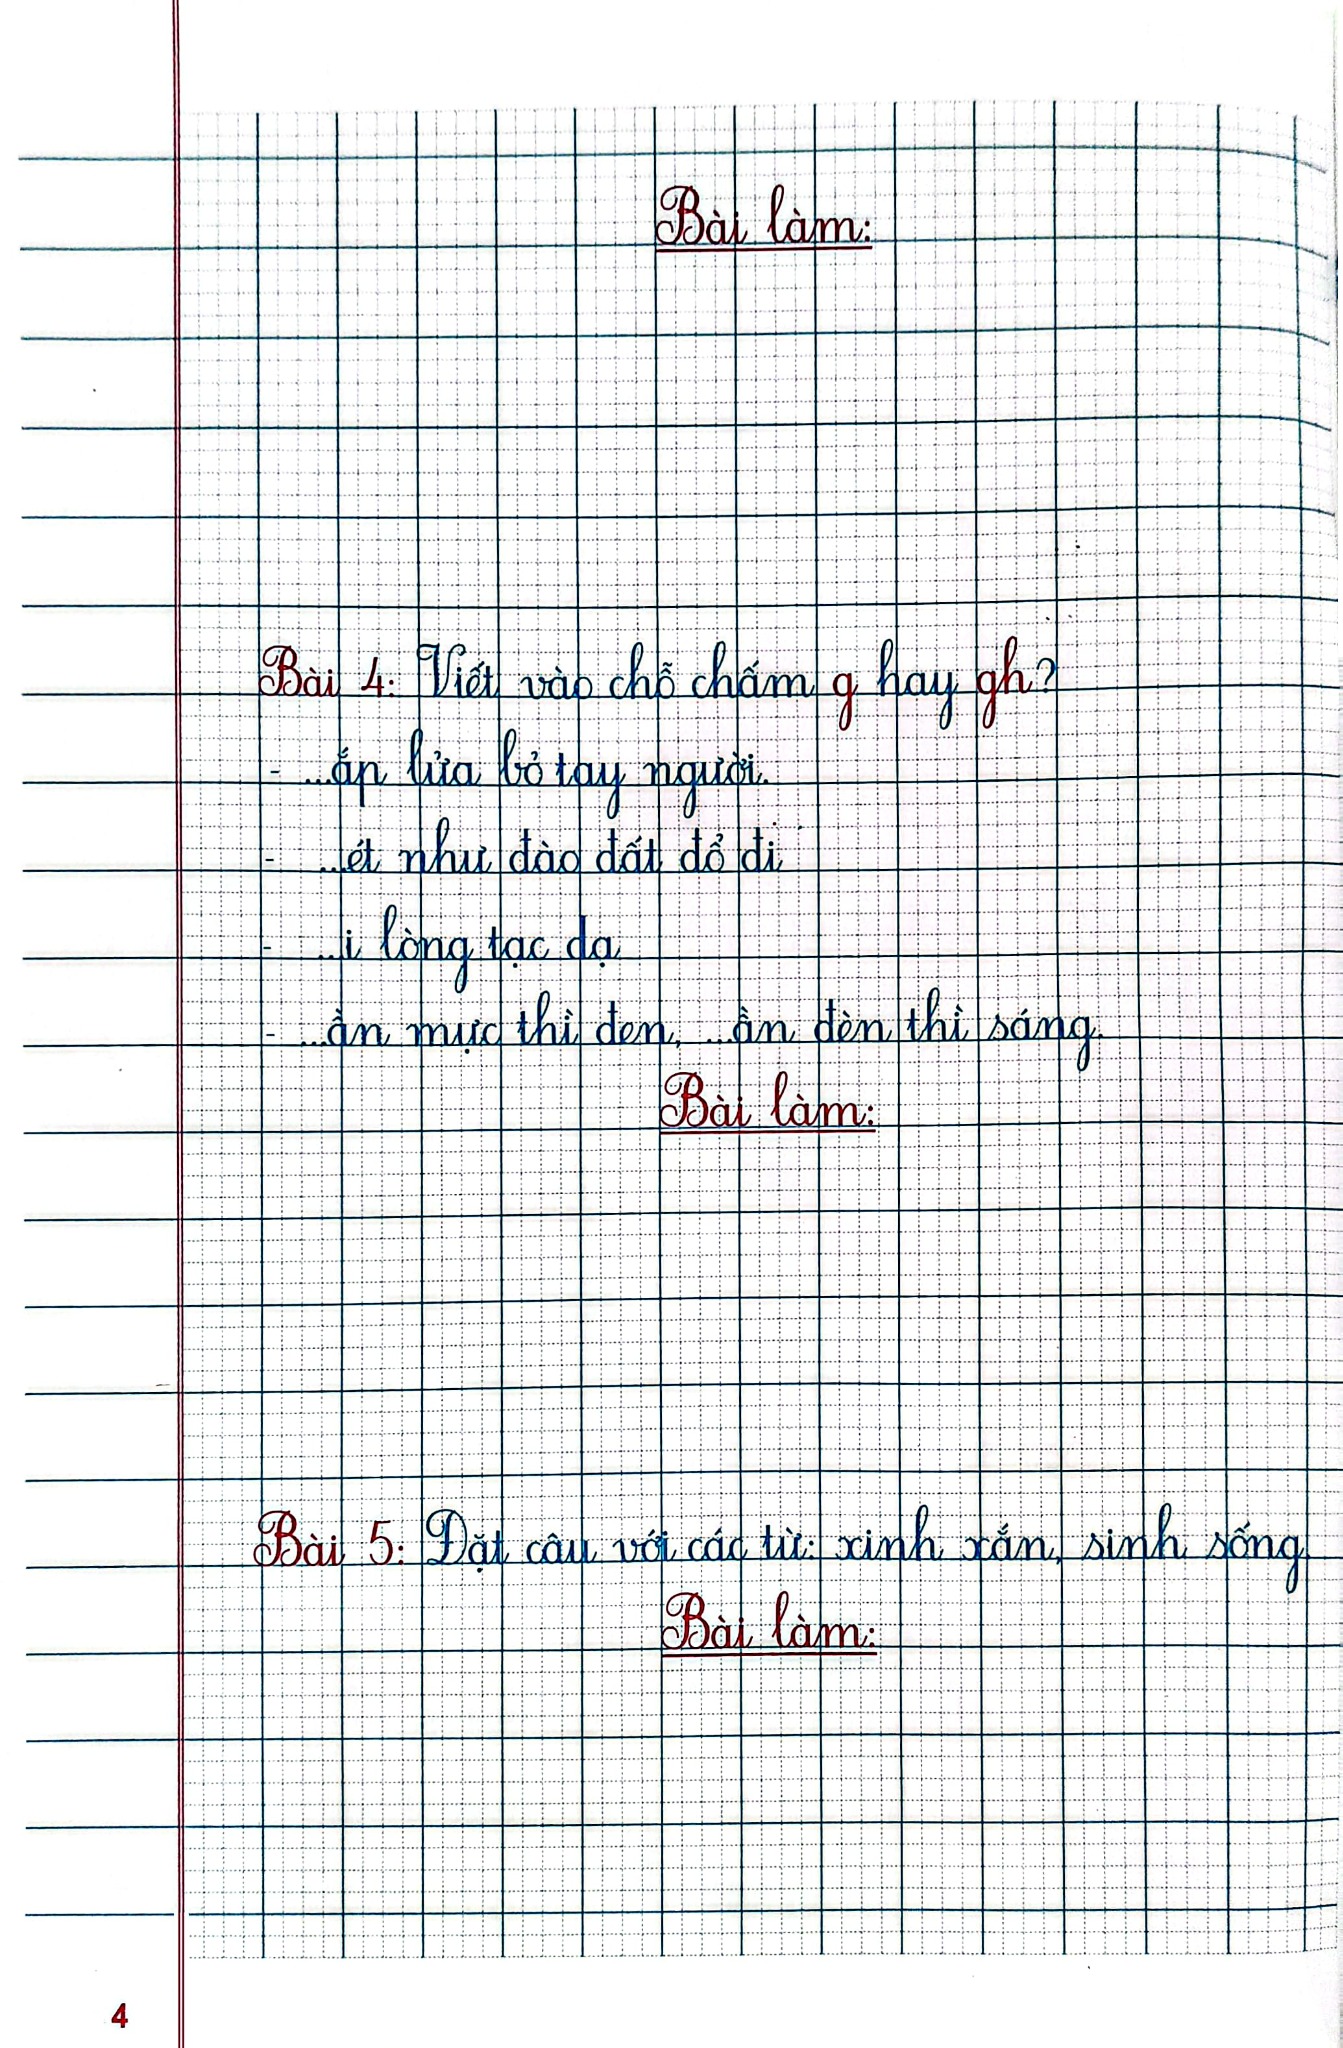 Bài làm:
Bài 4: Viết vào chỗ chấm g hay gh?
- ...ắp lửa bỏ tay người.
- ...ét như đào đất đổ đi
- ...i lòng tạc dạ
- ...ần mực thì đen, ...ần đèn thì sáng.
Bài làm:
Bài 5: Đặt câu với các từ: xinh xắn, sinh sống.
Bài làm:
4